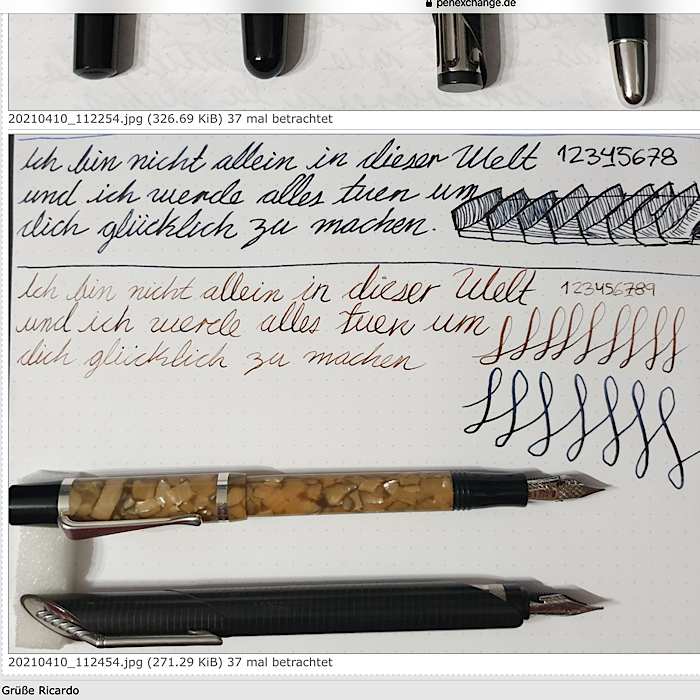 penexchange.de
20210410_112254.jpg (326.69 KiB) 37 mal betrachtet
Ich bin nicht allein in dieser Welt 12345678
und ich werde alles tuen um
dich glücklich zu machen.
Ich bin nicht allein in dieser Welt 123456789
und ich werde alles tuen um
dich glücklich zu machen
20210410_112454.jpg (271.29 KiB) 37 mal betrachtet
Grüße Ricardo